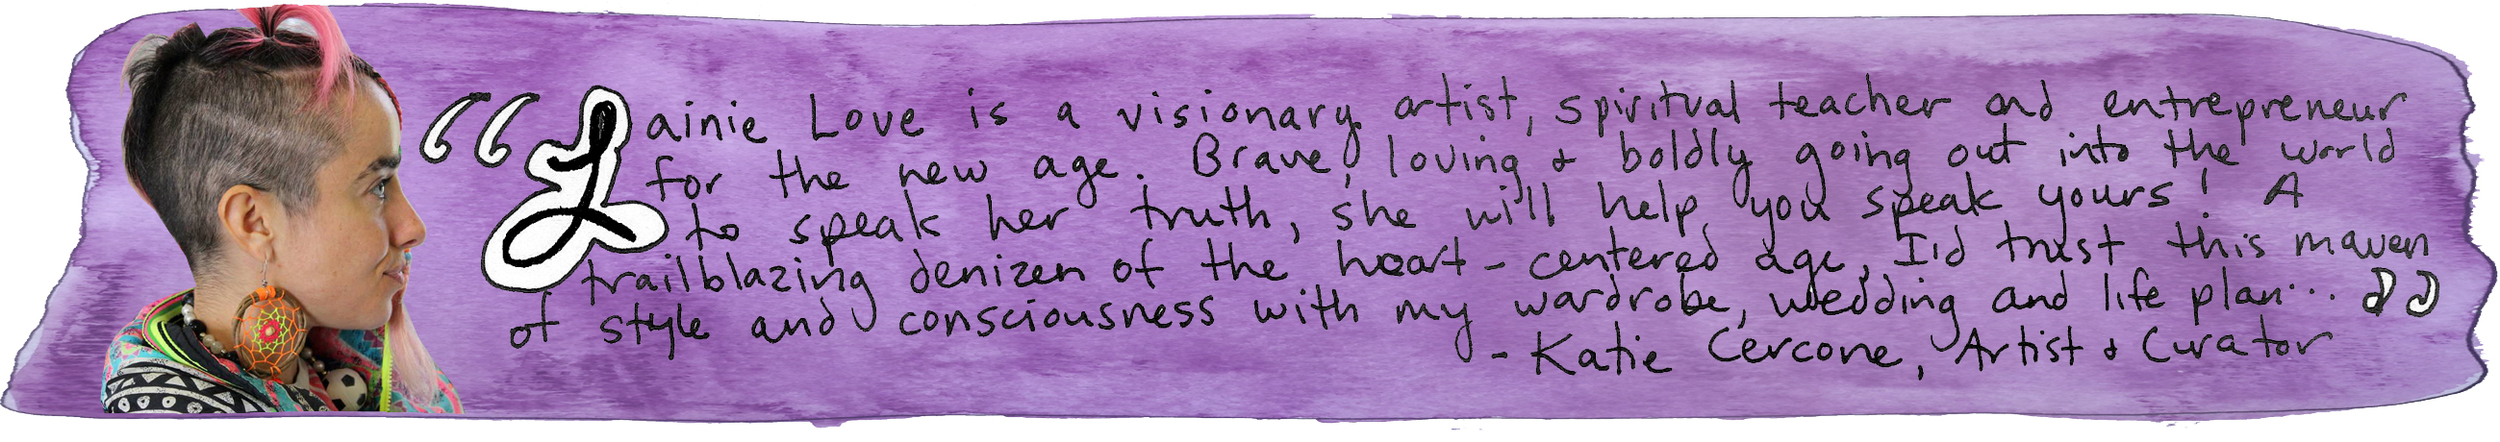 “Lainie Love is a visionary artist, spiritual teacher and entrepreneur
for the new age. Brave, loving & boldly going out into the world
to speak her truth, she will help you speak yours! A
trailblazing denizen of the heart-centered age, I'd trust this maven
of style and consciousness with my wardrobe, wedding and life plan... ”
- Katie Cercone, Artist & Curator